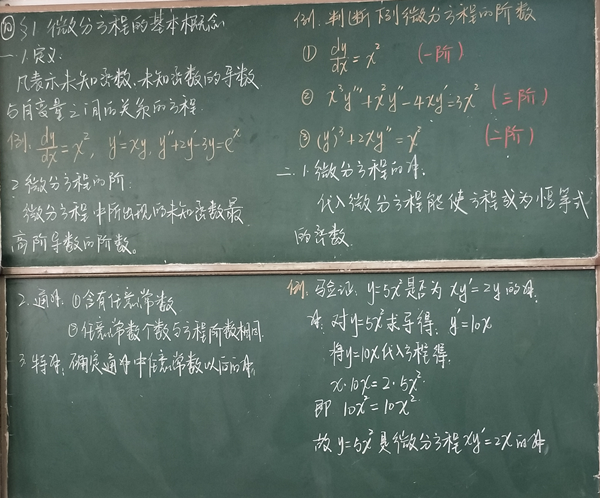 回 §1 微分方程的基本概念
一 1.定义
凡表示未知函数、未知函数的导数
与自变量之间的关系的方程.
例. dy/dx = x², y′=xy, y″+2y′-3y=eˣ
2 微分方程的阶:
微分方程中所出现的未知函数最
高阶导数的阶数。
例. 判断下列微分方程的阶数
① dy/dx = x² (一阶)
② x³y‴+x²y″-4xy′=3x² (三阶)
③ (y′)³+2xy″=x² (二阶)
二. 1.微分方程的解.
代入微分方程能使方程成为恒等式
的函数.
2. 通解. ①含有任意常数
②任意常数个数与方程阶数相同.
3. 特解. 确定通解中任意常数以后的解.
例. 验证: y=5x²是否为 xy′=2y 的解.
解. 对y=5x²求导得, y′=10x
将y=10x代入方程得.
x·10x=2·5x²
即 10x²=10x²
故 y=5x²是微分方程xy′=2x的解